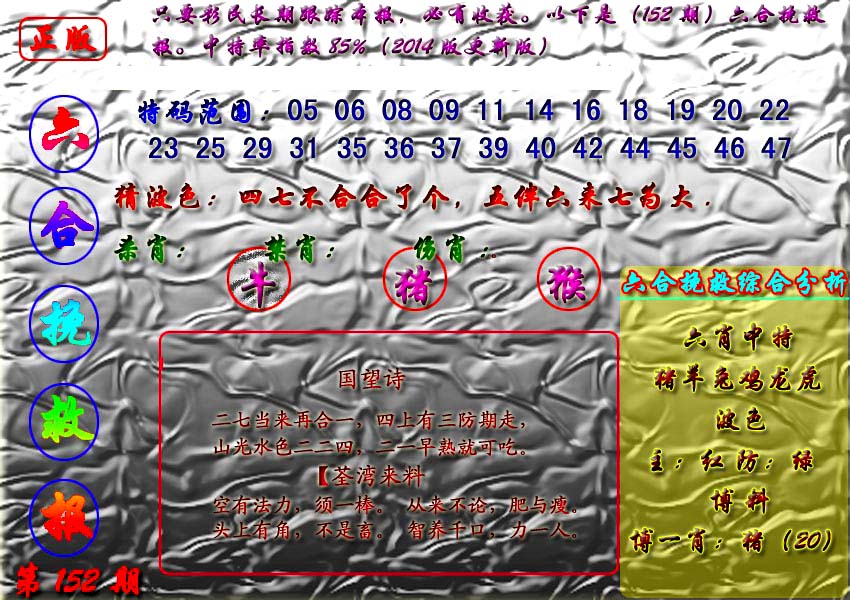 正版
只要彩民长期跟踪本报，必有收获。以下是（152期）六合挽救
报。中特率指数85%（2014版更新版）
六
合
挽
救
报
第152期
特码范围：05 06 08 09 11 14 16 18 19 20 22
23 25 29 31 35 36 37 39 40 42 44 45 46 47
猜波色：四七不合合了个，五伴六来七为大.
杀肖：禁肖：伤肖：
牛 猪 猴
国望诗
二七当来再合一，四上有三防期走，
山光水色二二四，二一早熟就可吃。
【荃湾来料
空有法力，须一棒。 从来不论，肥与瘦。
头上有角，不是畜。 智养千口，力一人。
六合挽救综合分析
六肖中特
猪羊兔鸡龙虎
波色
主：红防：绿
博料
博一肖：猪（20）